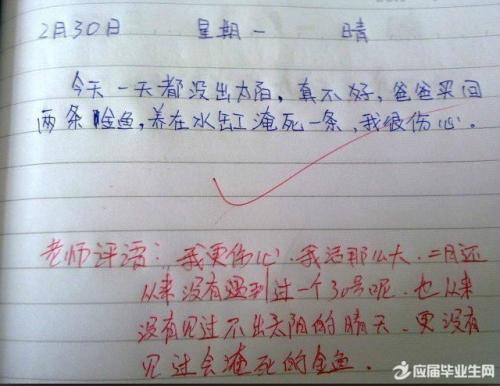 2月30日 星期一 晴
今天一天都没出太阳，真不好，爸爸买回
两条金鱼，养在水缸淹死一条，我很伤心．
老师评语：我更伤心．我活那么大．二月还
从来没有碰到过一个30号呢．也从来
没有见过不出太阳的晴天．更没有
见过会淹死的金鱼．
应届毕业生网